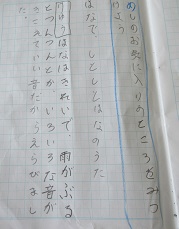 めしのお気に入りのところをみつ
けよう
はなで、しとしとはなのうた
りゆう はなはきれいで、雨がぶる
とつんつんとか、いろいろな音が
きこえていい音だからえらびまし
た。